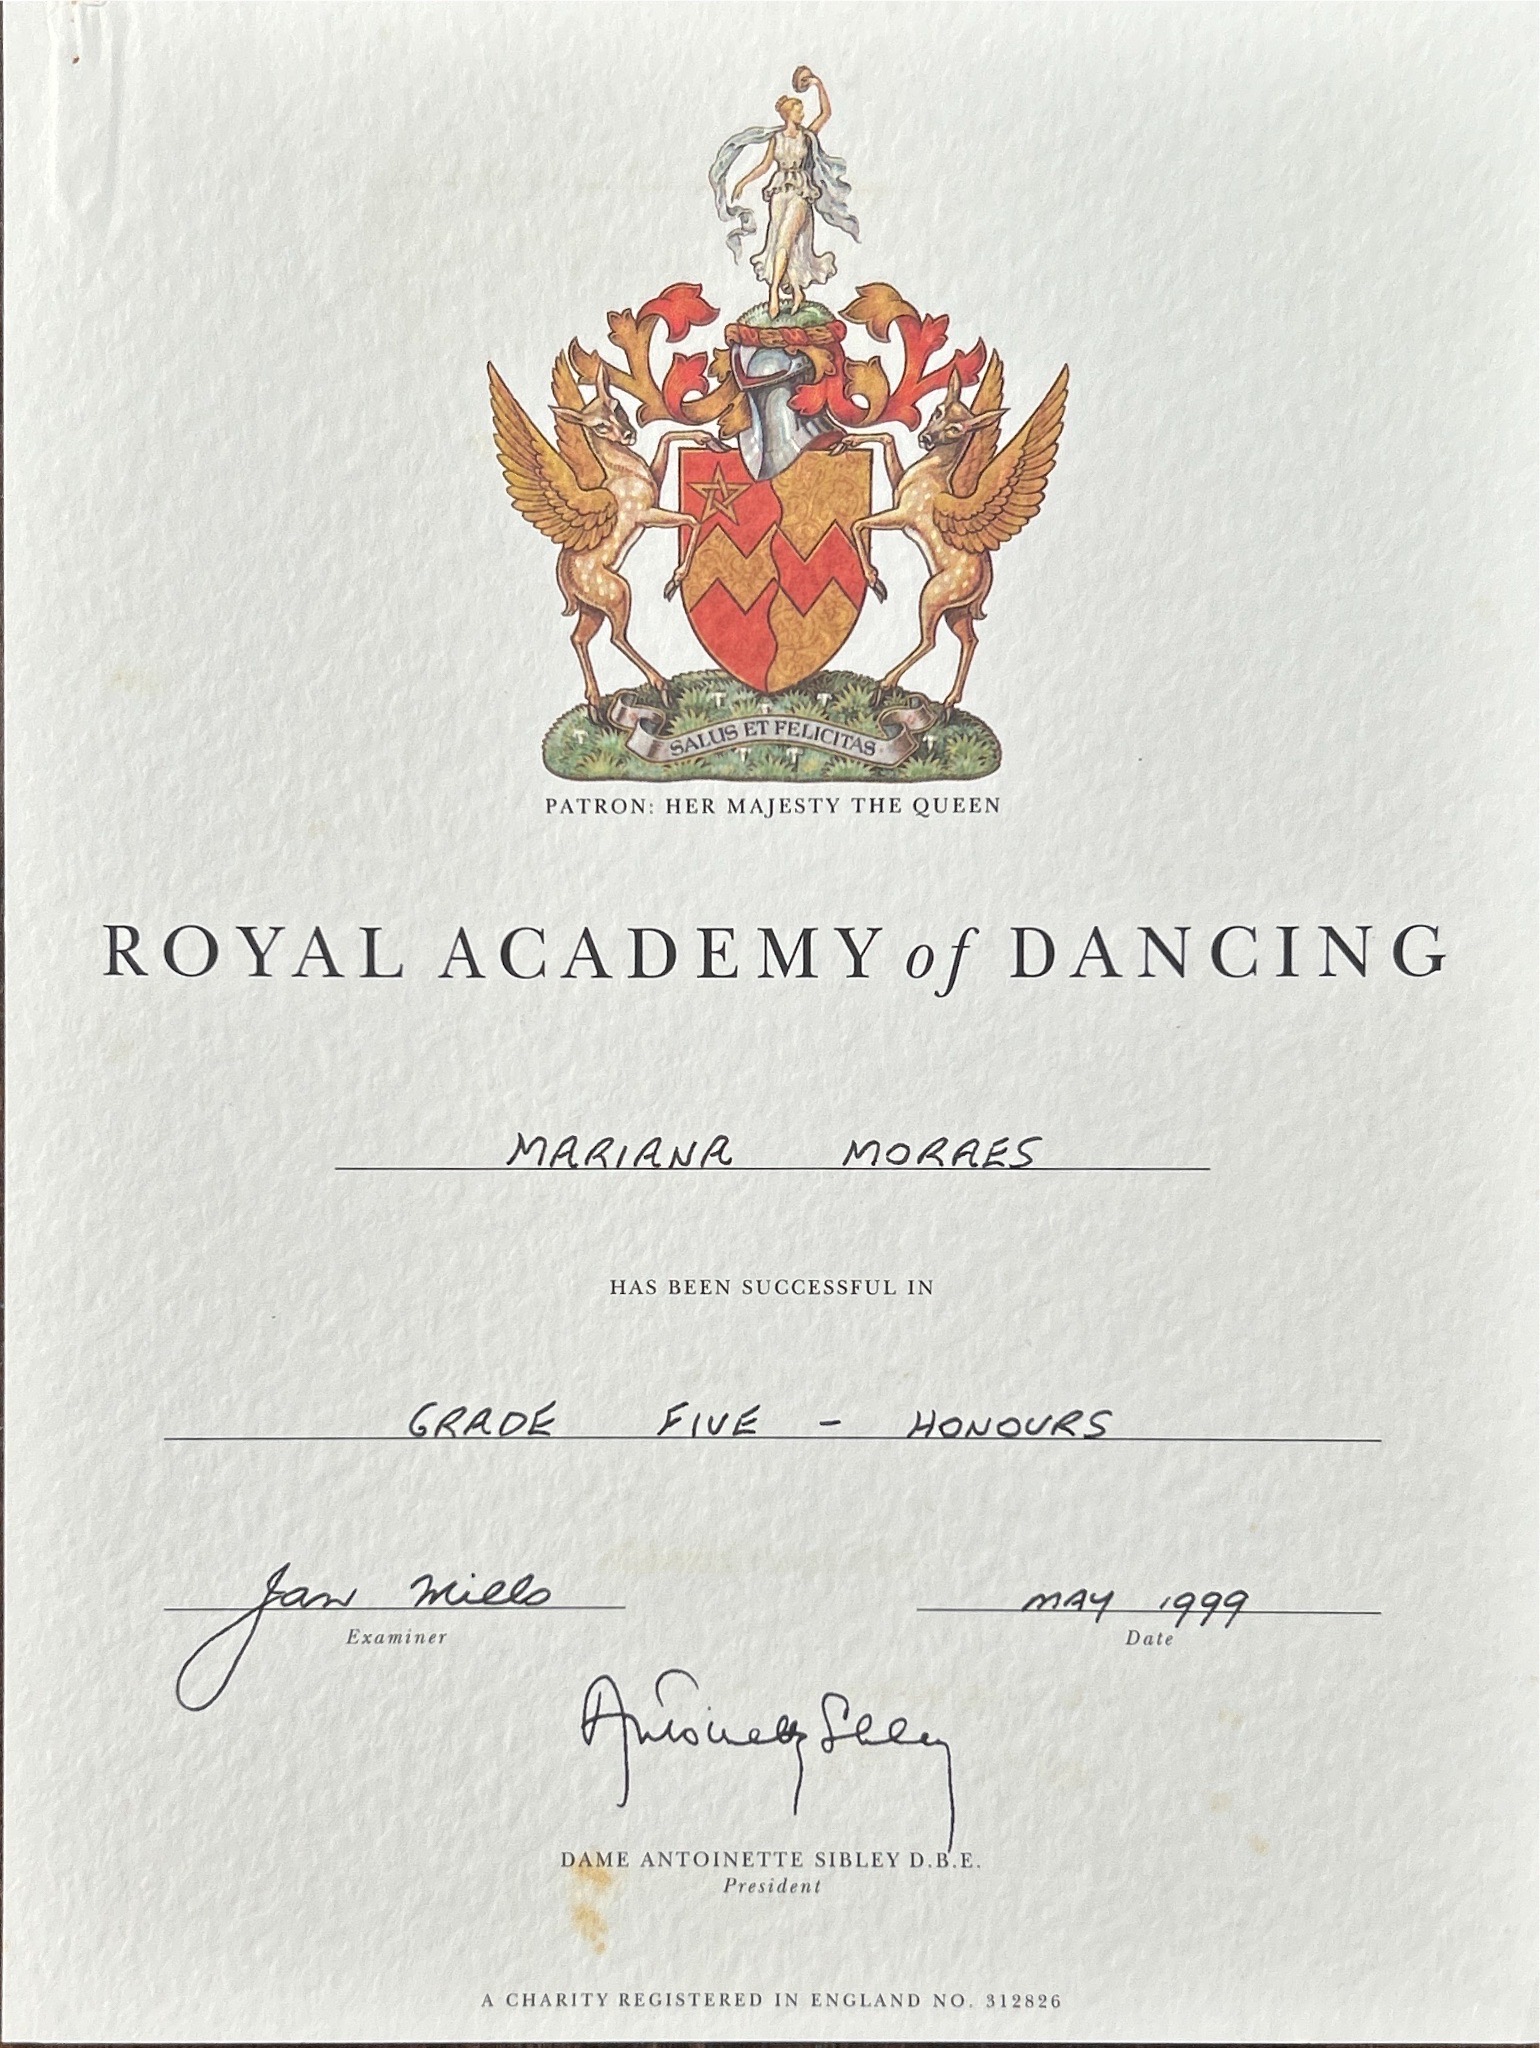 SALUS ET FELICITAS
PATRON: HER MAJESTY THE QUEEN
ROYAL ACADEMY of DANCING
MARIANA MORAES
HAS BEEN SUCCESSFUL IN
GRADE FIVE - HONOURS
Jan Mills
MAY 1999
Examiner
Date
Antoinette Sibley
DAME ANTOINETTE SIBLEY D.B.E.
President
A CHARITY REGISTERED IN ENGLAND NO. 312826